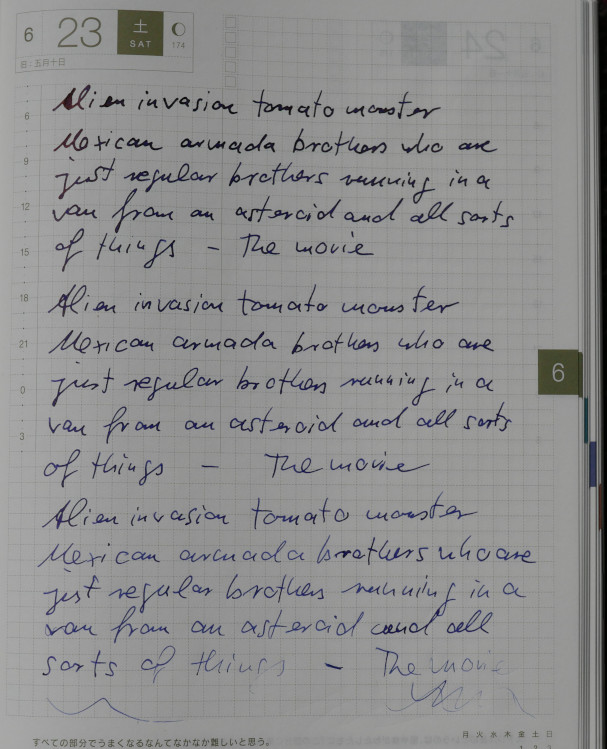 6 23 土 SAT 174
旧:五月十日
Alien invasion tomato monster
6
Mexican armada brothers who are
9
just regular brothers running in a
12
van from an asteroid and all sorts
15
of things – The movie
18
Alien invasion tomato monster
21
Mexican armada brothers who are
6
0
just regular brothers running in a
3
van from an asteroid and all sorts
of things – The movie
Alien invasion tomato monster
Mexican armada brothers who are
just regular brothers running in a
van from an asteroid and all
sorts of things – The movie
月 火 水 木 金 土 日
すべての部分でうまくなるなんてなかなか難しいと思う。
1 2 3